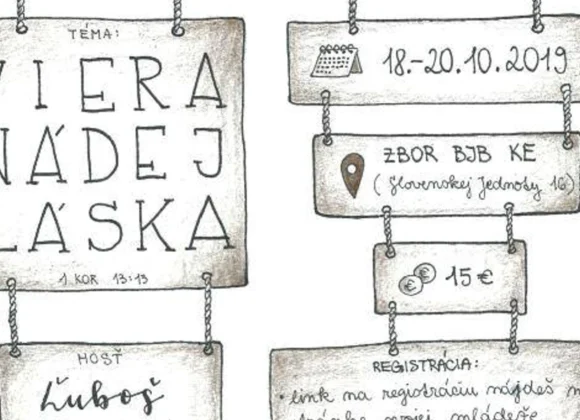 TÉMA:
VIERA
NÁDEJ
LÁSKA
1 KOR 13:13
HOSŤ
Ľuboš
18.-20.10.2019
ZBOR BJB KE
(Slovenskej Jednoty 16)
15€
REGISTRÁCIA:
• link na registráciu nájdeš n
mládeže